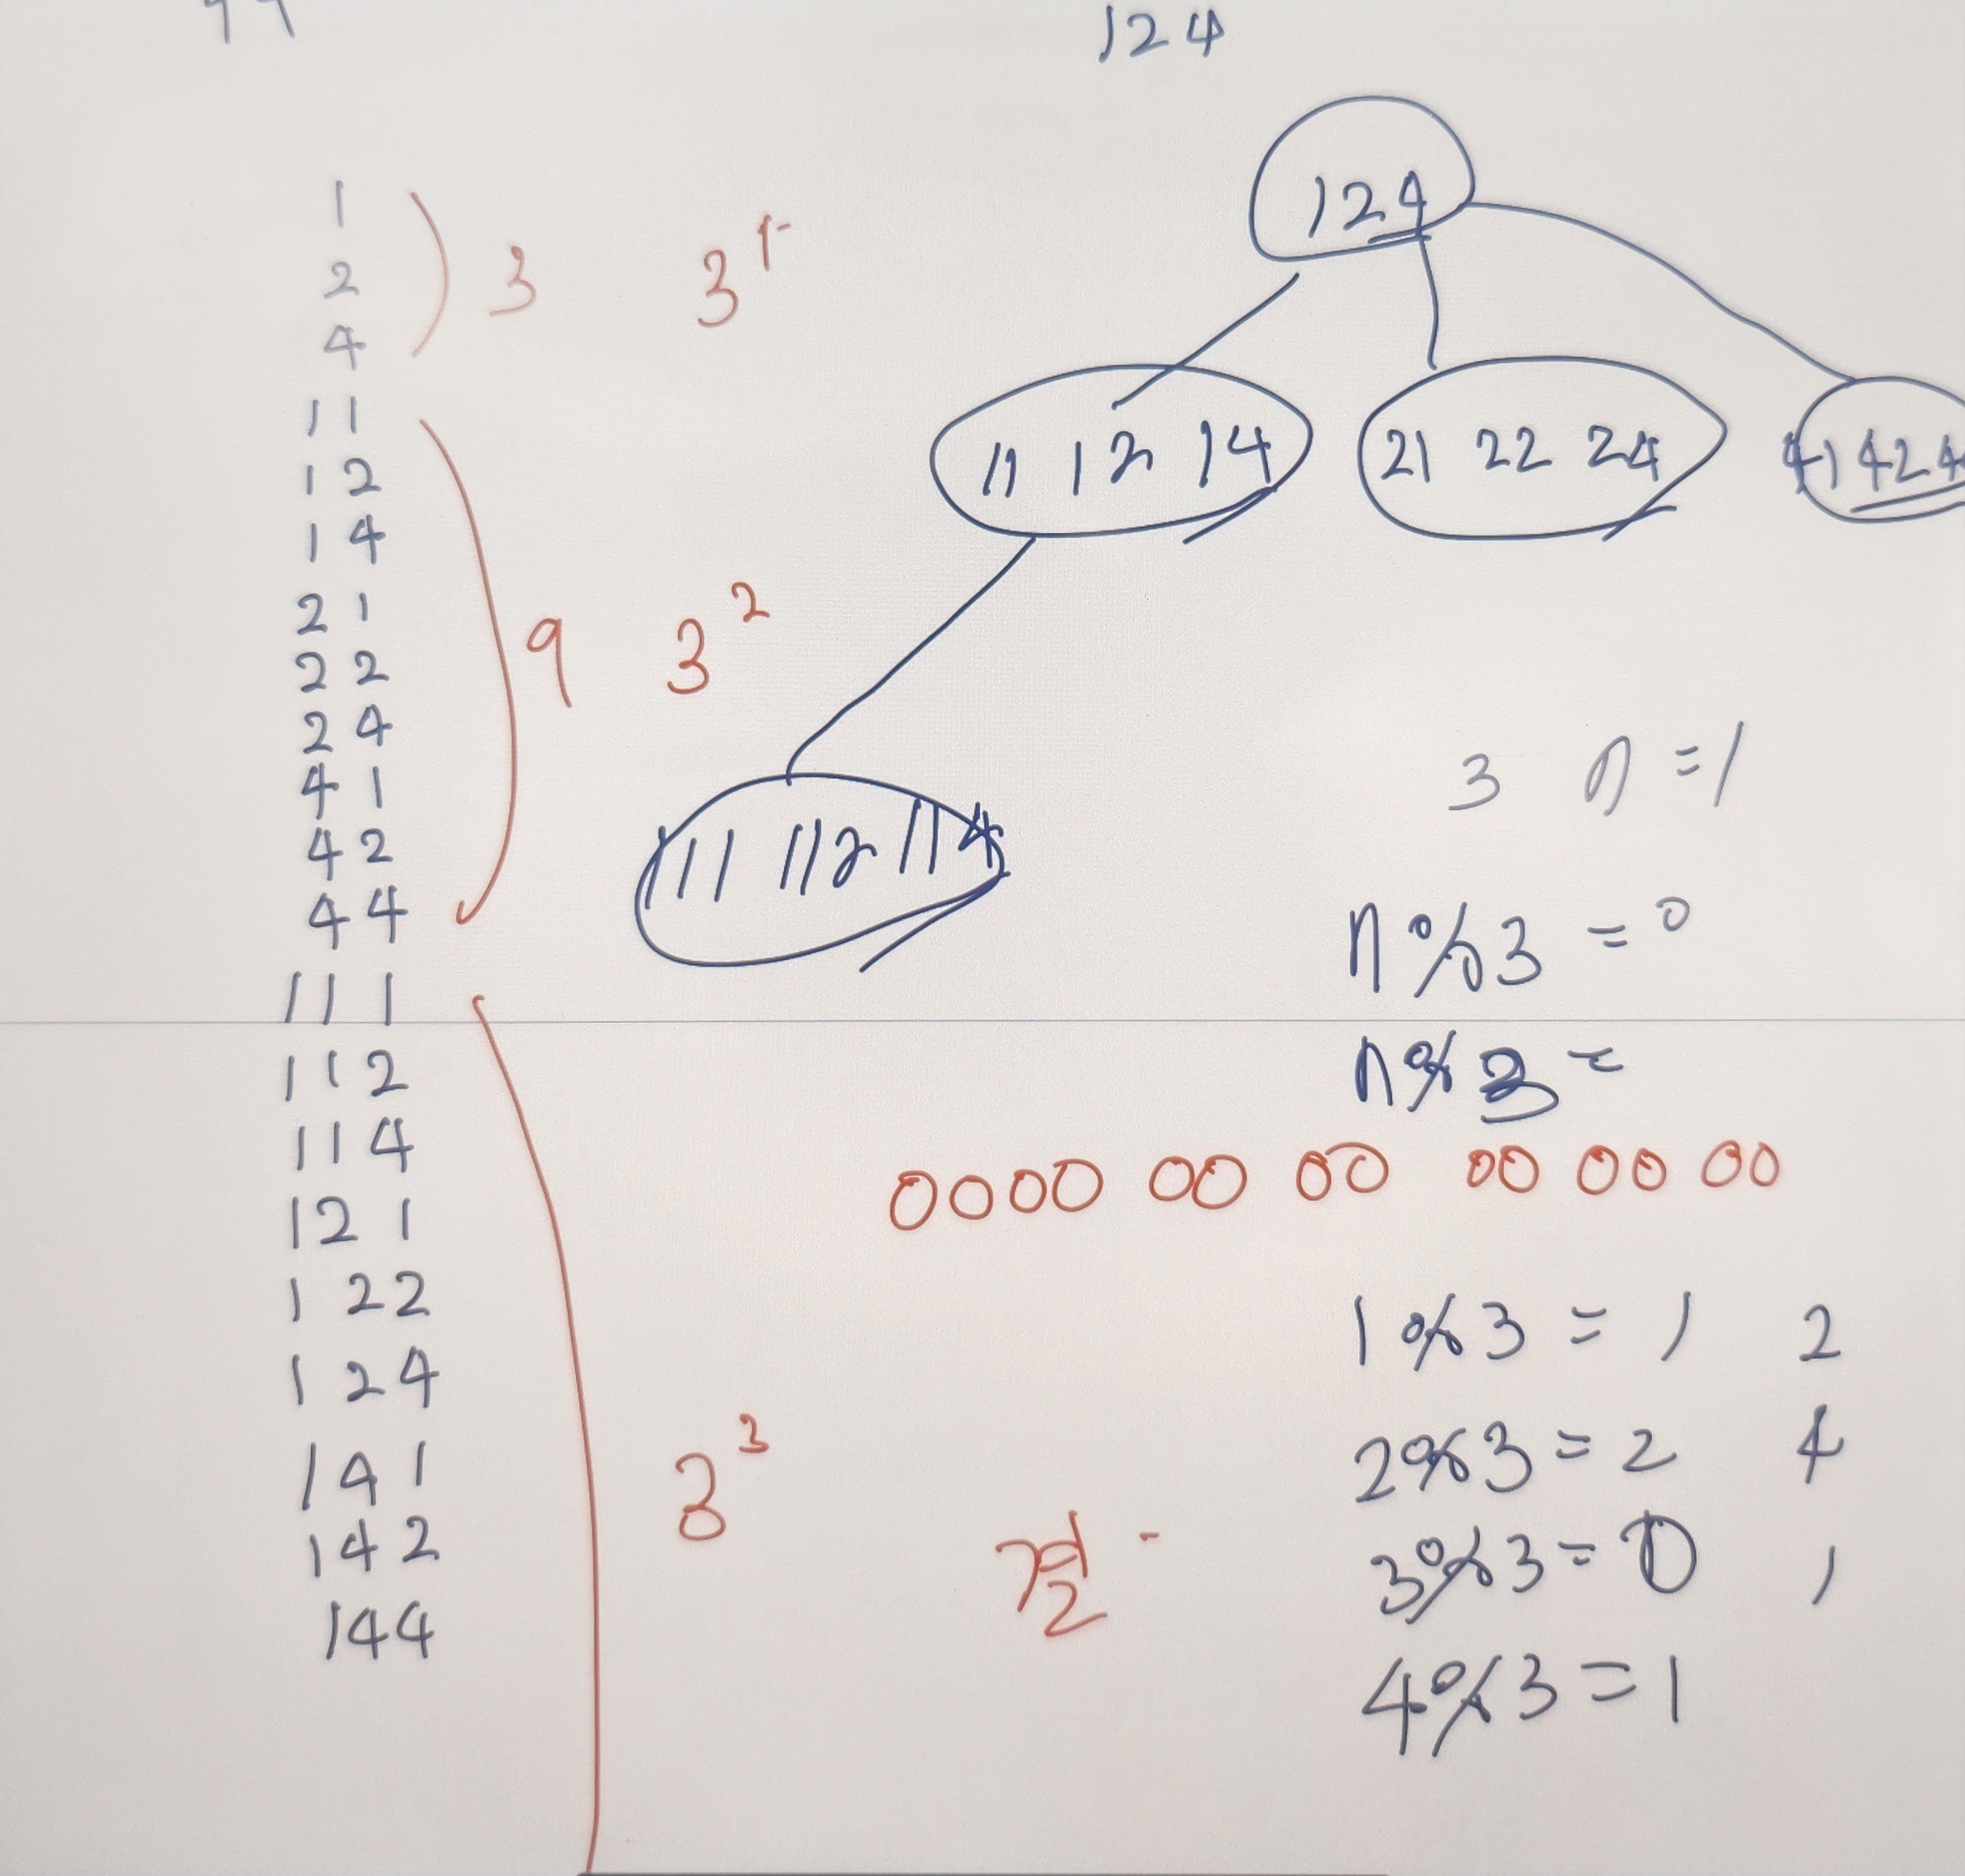 124
1
2
4
3
3^1
11
12
14
21
22
24
41
42
44
9
3^2
111
112
114
121
122
124
141
142
144
3^3
124
11 12 14
21 22 24
41 42 4
111 112 114
3 n = 1
n % 3 = 0
n % 3 =
0000 00 00 00 00 00
1 % 3 = 1 2
2 % 3 = 2 4
3 % 3 = 0 1
4 % 3 = 1